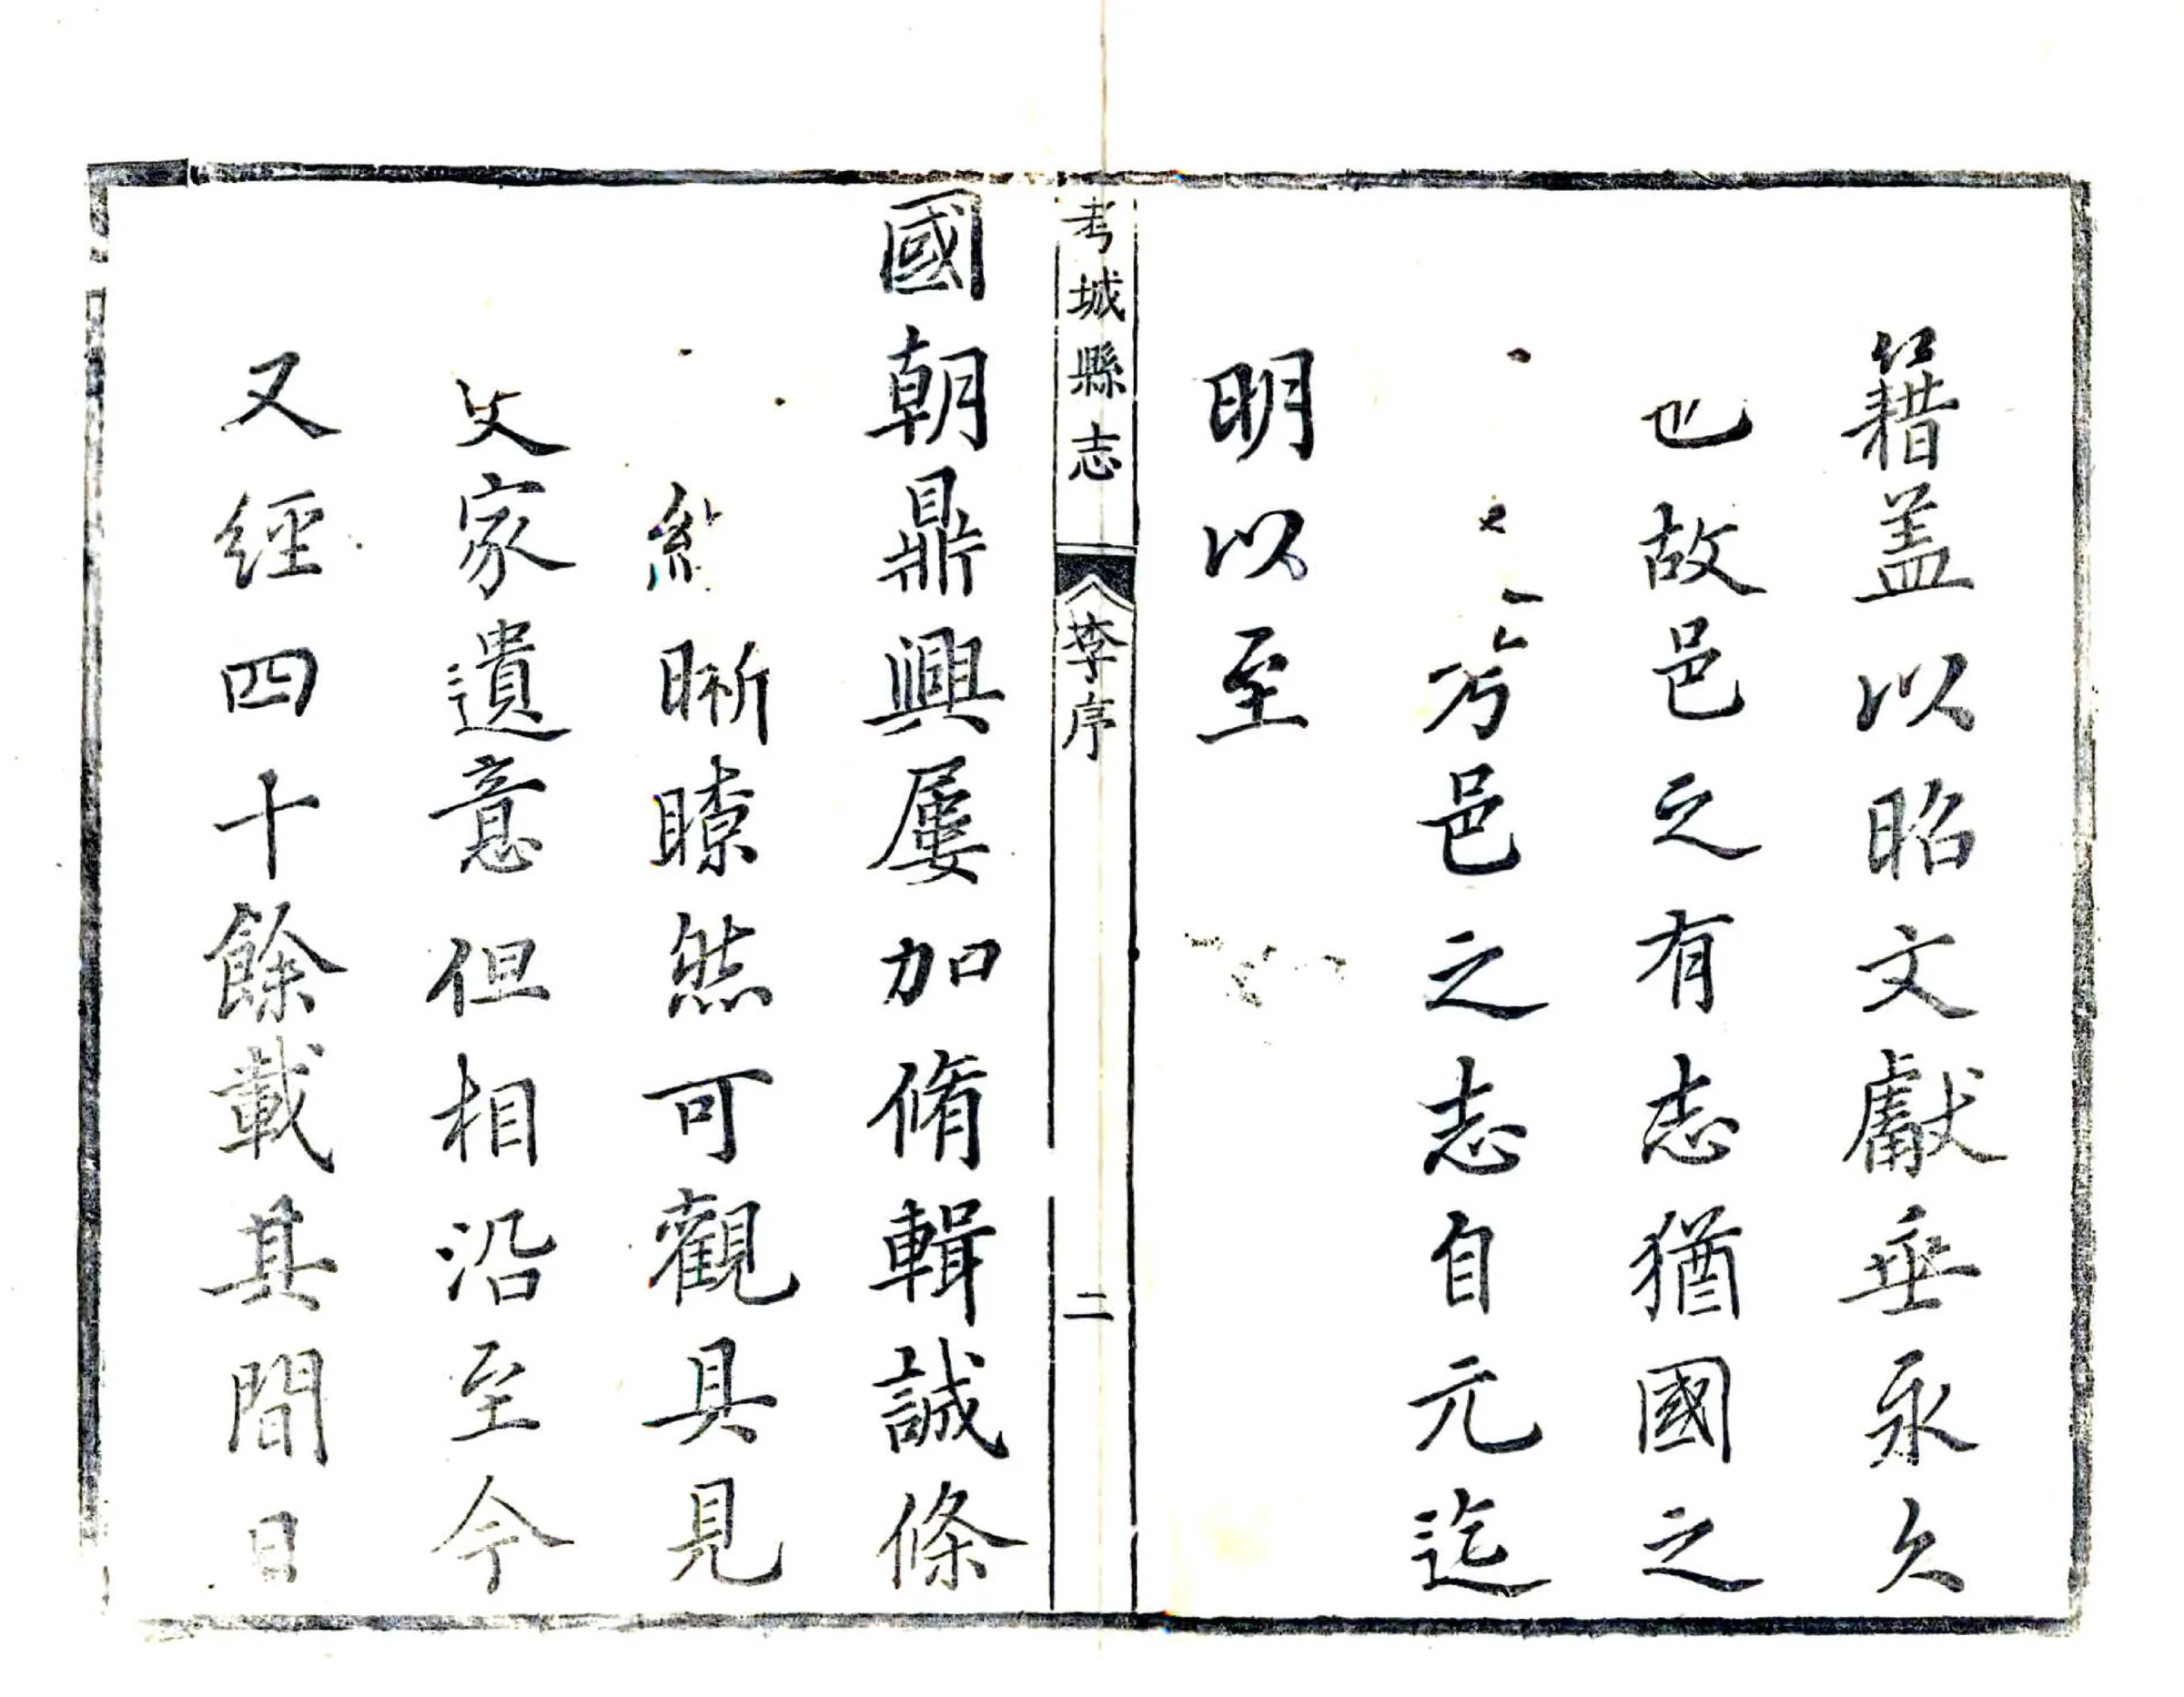 籍盖以昭文獻垂永久
也故邑之有志猶國之
邑之志自元迄
明以至
考城縣志
李序
二
國朝鼎興屢加脩輯誠條
晰瞭然可觀具見
家遺意但相沿至今
又經四十餘載其間日